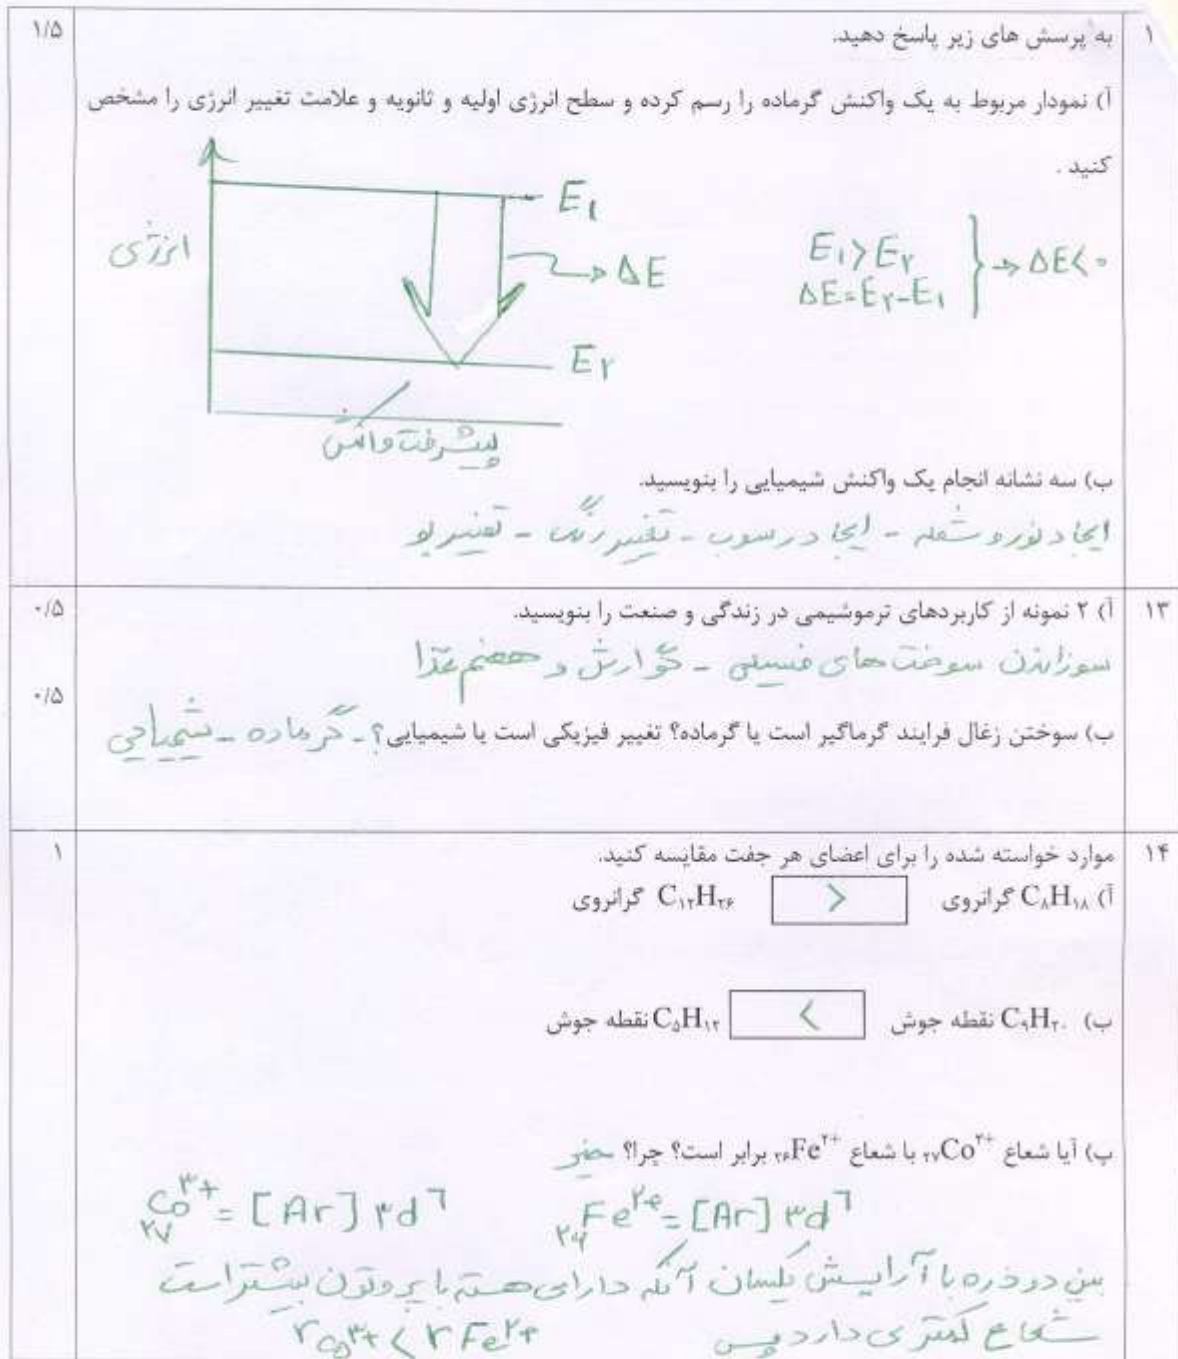 ۱ به پرسش های زیر پاسخ دهید. ۱/۵
آ) نمودار مربوط به یک واکنش گرماده را رسم کرده و سطح انرژی اولیه و ثانویه و علامت تغییر انرژی را مشخص
کنید .
انرژی
E₁
ΔE
E₂
پیشرفت واکنش
E₁>E₂
ΔE=E₂-E₁
→ ΔE<۰
ب) سه نشانه انجام یک واکنش شیمیایی را بنویسید.
ایجاد نور و شعله - ایجاد رسوب - تغییر رنگ - تغییر بو
۱۳ آ) ۲ نمونه از کاربردهای ترموشیمی در زندگی و صنعت را بنویسید. ۰/۵
سوزاندن سوخت های فسیلی - گوارش و هضم غذا
ب) سوختن زغال فرایند گرماگیر است یا گرماده؟ تغییر فیزیکی است یا شیمیایی؟ - گرماده - شیمیایی ۰/۵
۱۴ موارد خواسته شده را برای اعضای هر جفت مقایسه کنید. ۱
آ) C₈H₁₈ گرانروی > C₁₂H₂₆ گرانروی
ب) C₉H₂₀ نقطه جوش < C₅H₁₂ نقطه جوش
پ) آیا شعاع ₂₇Co³⁺ با شعاع ₂₆Fe²⁺ برابر است؟ چرا؟ خیر
₂₇Co³⁺ = [Ar] ۳d⁶ ₂₆Fe²⁺ = [Ar] ۳d⁶
بین دو ذره با آرایش یکسان آنکه دارای هسته با پروتون بیشتر است
شعاع کمتری دارد پس r Co³⁺ < r Fe²⁺